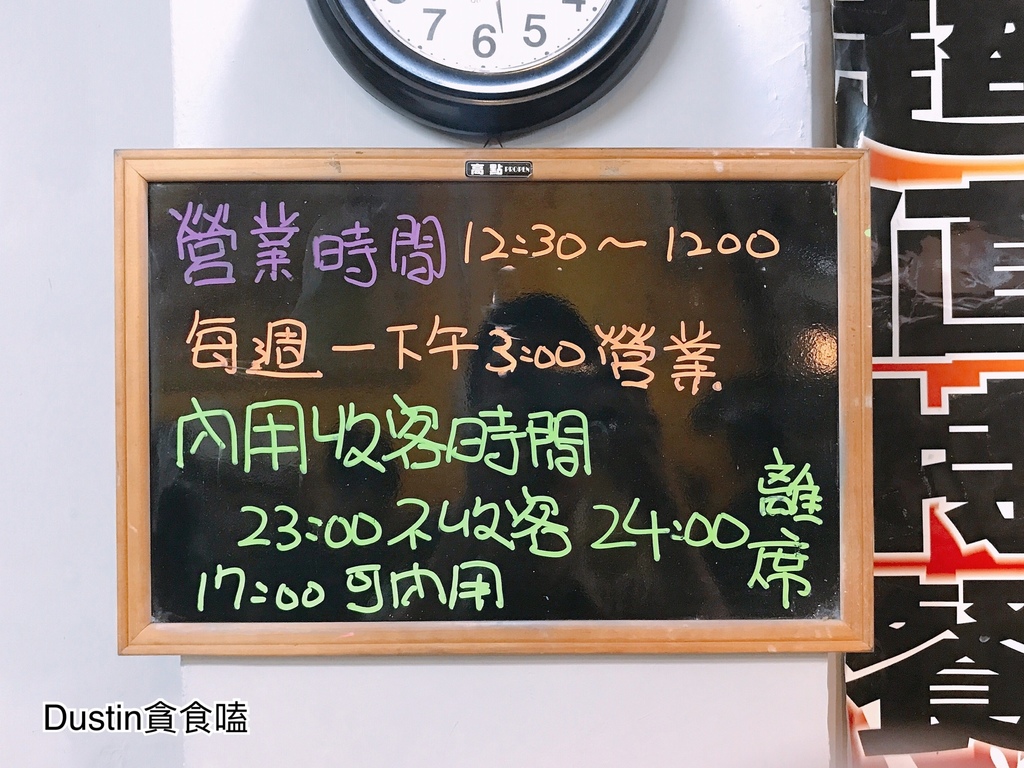 7 6 5 4
高點 PROPEN
營業時間 12:30～1200
每週一下午3:00營業
內用收客時間
23:00不收客 24:00離席
17:00可內用
Dustin貪食嗑